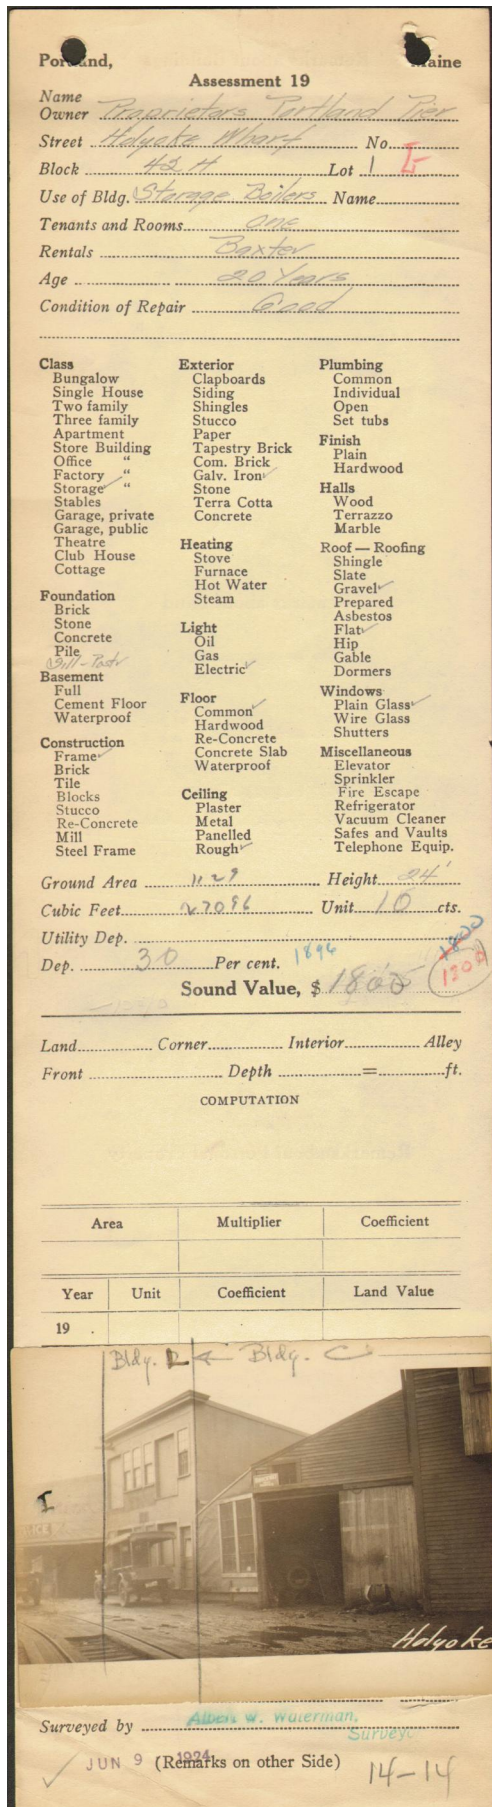 Portland, Maine
Assessment 19
Name
Owner Proprietors Portland Pier
Street Holyoke Wharf No.
Block 42 H Lot 1 L
Use of Bldg. Storage Boilers Name
Tenants and Rooms one
Rentals Baxter
Age 20 Years
Condition of Repair Good
Class
Bungalow
Single House
Two family
Three family
Apartment
Store Building
Office "
Factory "
Storage ✓ "
Stables
Garage, private
Garage, public
Theatre
Club House
Cottage
Foundation
Brick
Stone
Concrete
Pile
Sill-Posts
Basement
Full
Cement Floor
Waterproof
Construction
Frame ✓
Brick
Tile
Blocks
Stucco
Re-Concrete
Mill
Steel Frame
Exterior
Clapboards
Siding
Shingles
Stucco
Paper
Tapestry Brick
Com. Brick
Galv. Iron ✓
Stone
Terra Cotta
Concrete
Heating
Stove
Furnace
Hot Water
Steam
Light
Oil
Gas
Electric ✓
Floor
Common ✓
Hardwood
Re-Concrete
Concrete Slab
Waterproof
Ceiling
Plaster
Metal
Panelled
Rough ✓
Plumbing
Common
Individual
Open
Set tubs
Finish
Plain
Hardwood
Halls
Wood
Terrazzo
Marble
Roof — Roofing
Shingle
Slate
Gravel ✓
Prepared
Asbestos
Flat ✓
Hip
Gable
Dormers
Windows
Plain Glass ✓
Wire Glass
Shutters
Miscellaneous
Elevator
Sprinkler
Fire Escape
Refrigerator
Vacuum Cleaner
Safes and Vaults
Telephone Equip.
Ground Area 1129 Height 24'
Cubic Feet 27096 Unit 10 cts.
Utility Dep. 1800
Dep. 30 Per cent. 1896 1300
Sound Value, $ 1800
Land Corner Interior Alley
Front Depth = ft.
COMPUTATION
Area Multiplier Coefficient
Year Unit Coefficient Land Value
19
Bldg. L ← Bldg. C
I
ICE
Holyoke
Surveyed by Albert W. Waterman,
Surveyor
JUN 9 1924 (Remarks on other Side) 14-14